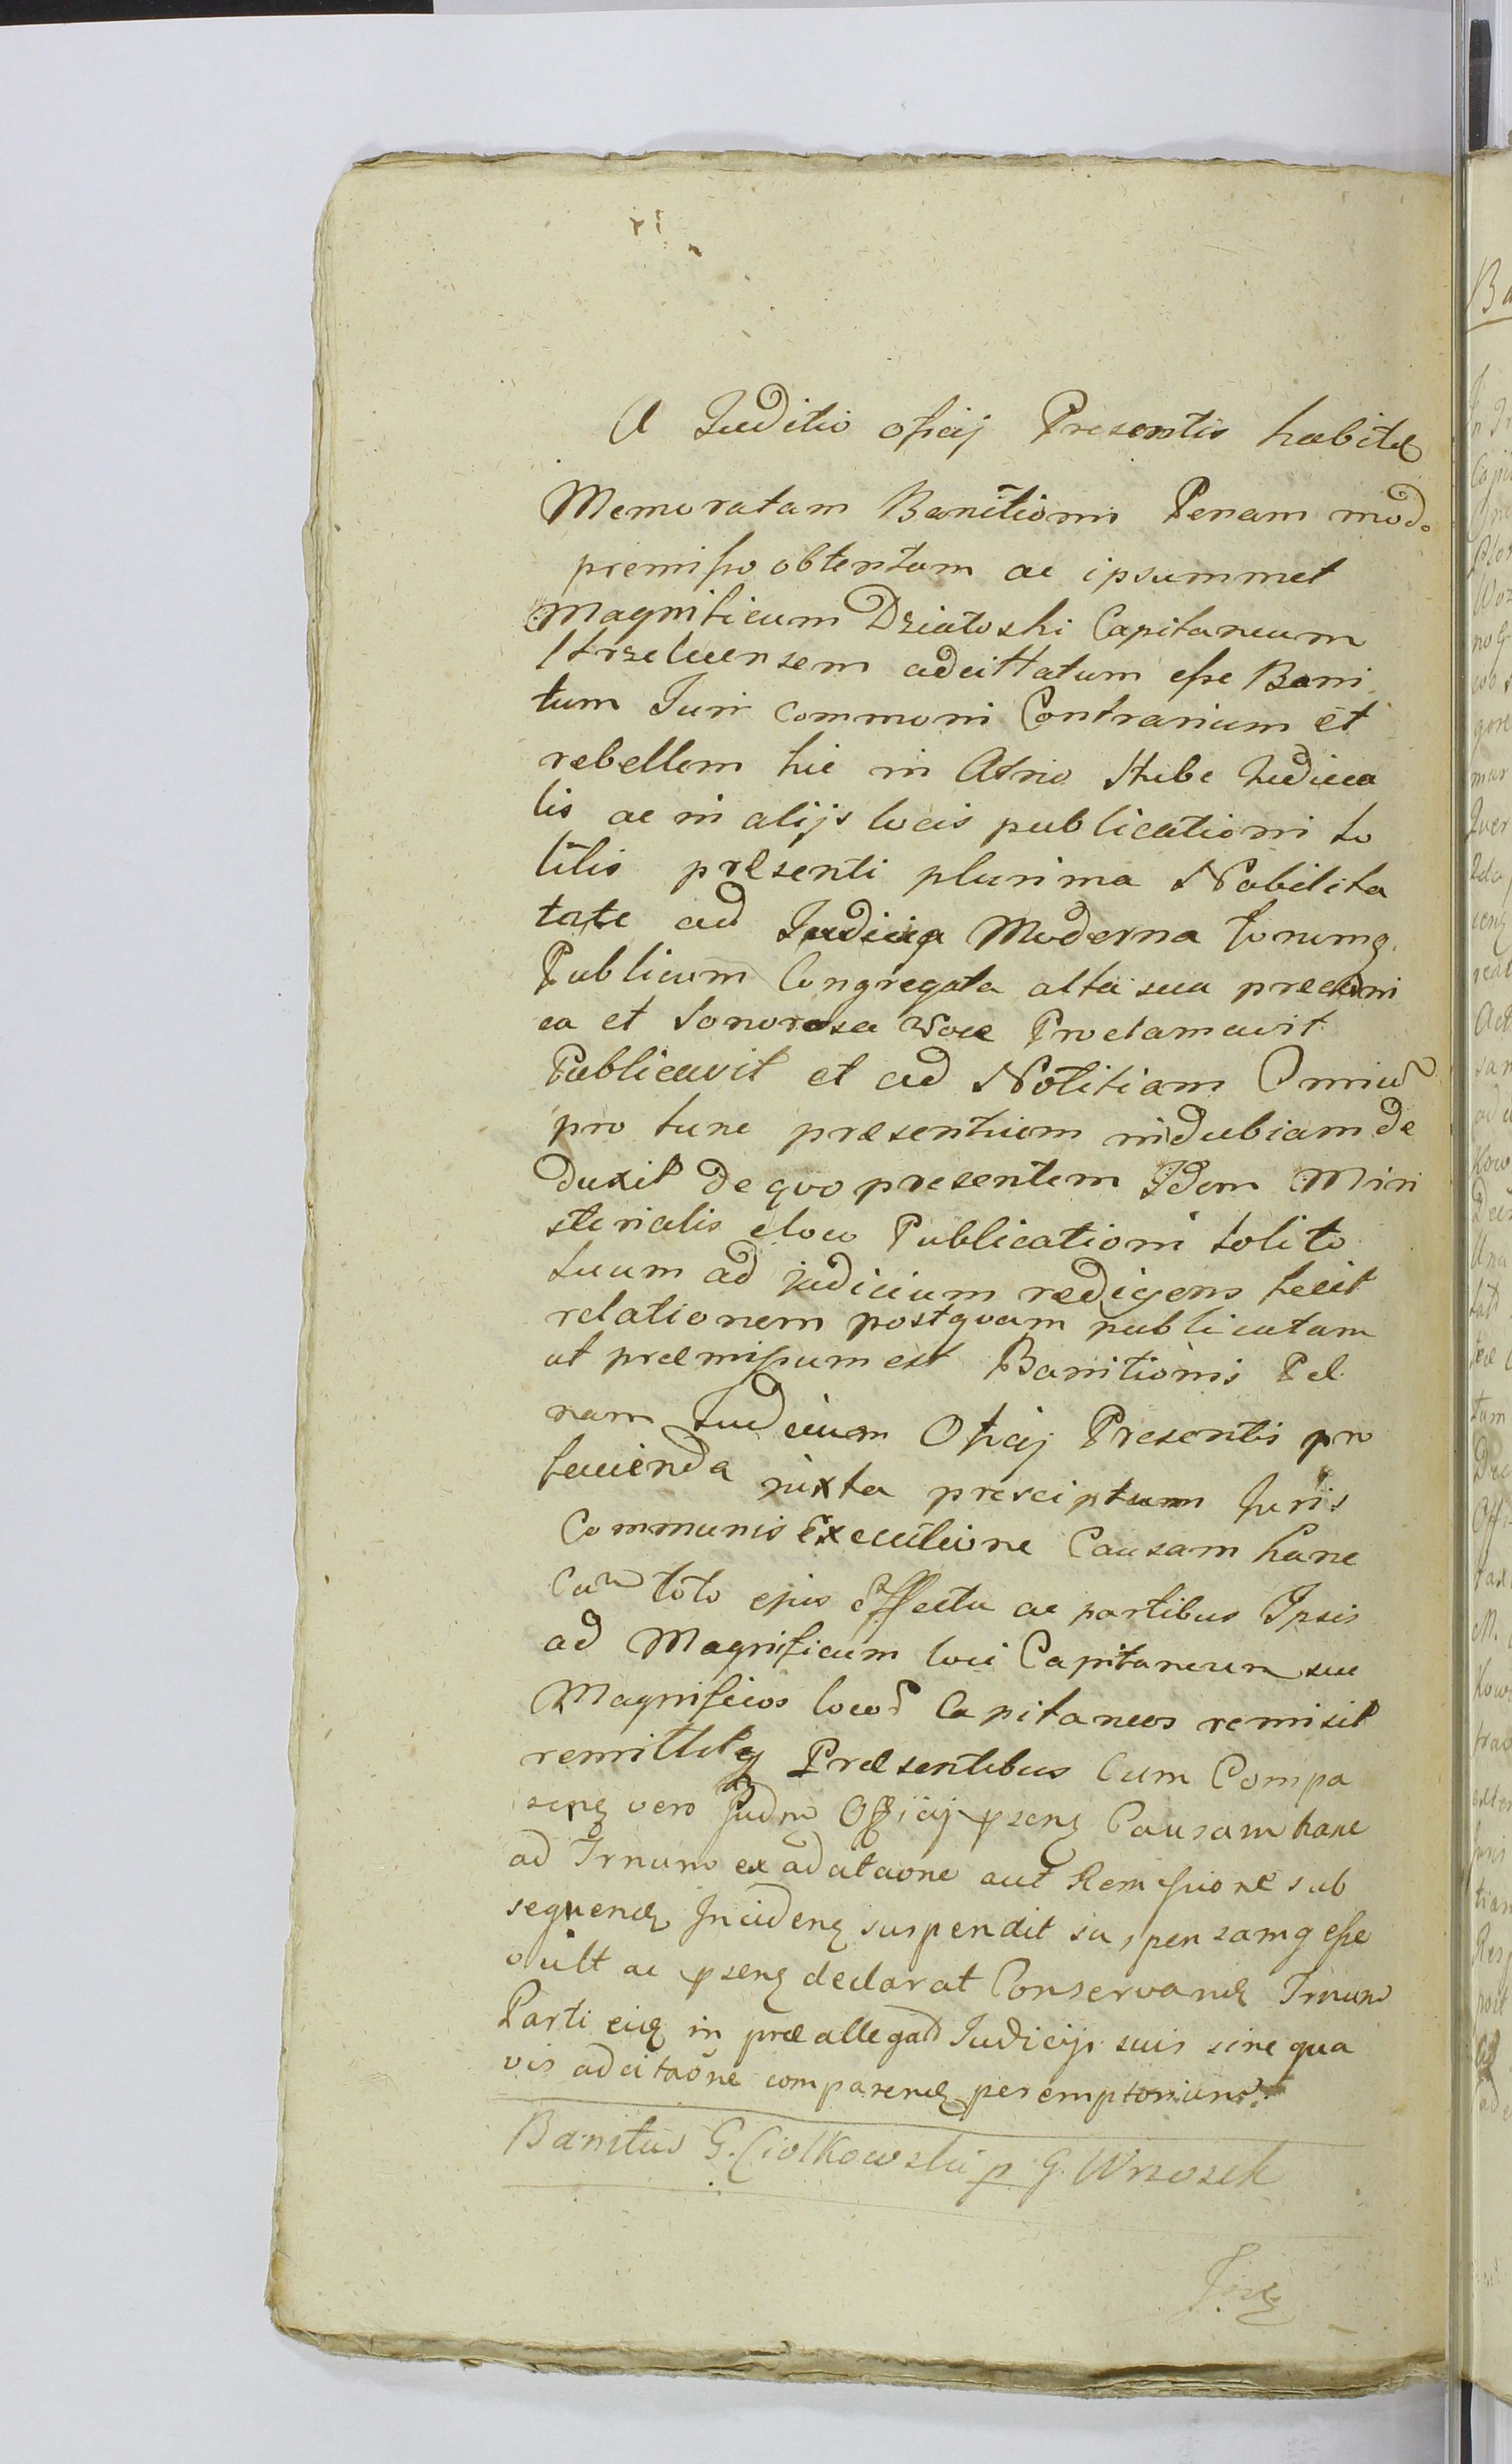 A Juditio oficij Presentis habita
Memoratam Banitionis Penam modo
premisso obtentam ac ipsummet
Magnificum Działoski Capitaneum
Strzelcensem adcittatum esse Bani
tum Juri commoni Contrarium et
rebellem hic in Atrio Stube Judicia
lis ac in alijs locis publicationi so
litis præsenti plurima Nobilita
tate ad Judicia Moderna forumq
Publicum Congregata alta sua preconi
ea et sonorosa Voce Proclamavit
Publicavit et ad Notitiam Omniu
pro tunc præsentium indubiam de
duxit de quo presentem Idem Mini
sterialis eloco Publicationi solito
suum ad judicium redigens fecit
relationem postquam publicatam
ut præmissum est Banitionis Pæ
nam Judicium Oficij Presentis pro
facienda juxta prescriptum Juris
Communis Executione Causam hanc
Cum toto ejus effectu ac partibus Ipsis
ad Magnificum loci Capitaneum seu
Magnificos locor Capitaneos remisit
remittitq Præsentibus Cum Compa
seng vero Judm Officij pseng Causam hanc
ad Trnum ex adcitaone aut Remissione sub
sequend Incideng suspendit suspensamq esse
vult ac pseng declarat Conservand Trnum
Parti cuiq in præallegatis Judicijs suis sine qua
vis adcitaone comparend peremptorium
Banitus G. Ciołkowski p G. Wrzosek